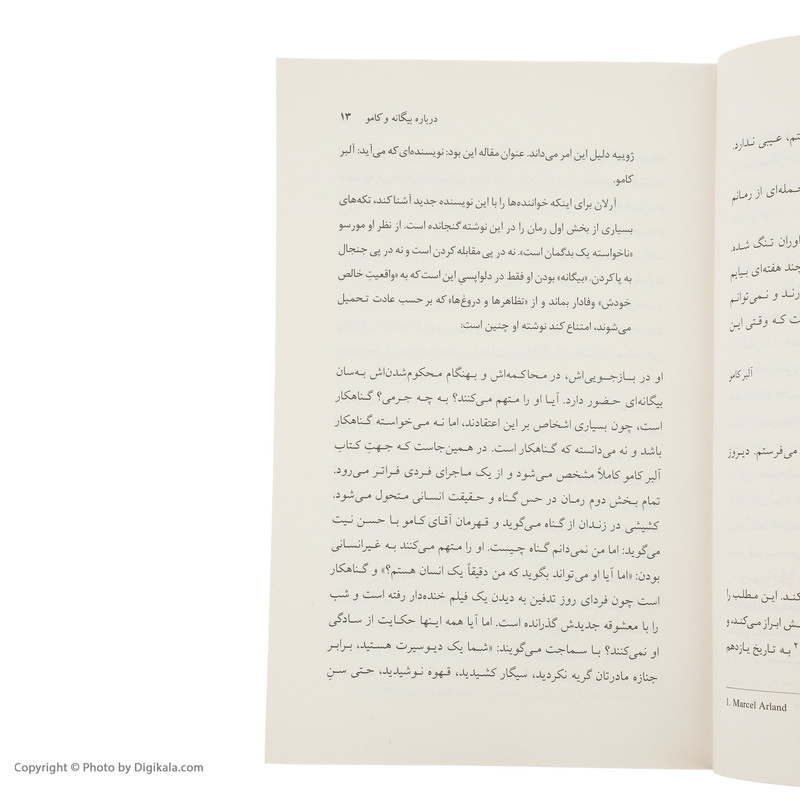 تم، عیبی ندارد.
جمله‌ای از رمانم
تنگ شده.
چند هفته‌ای بیایم
رند و نمی‌توانم
ت که وقتی این
آلبر کامو
می‌فرستم. دیروز
کند. این مطلب را
ابراز می‌کند، و
۲ به تاریخ یازدهم
1. Marcel Arland
درباره بیگانه و کامو ۱۳
ژوییه دلیل این امر می‌داند. عنوان مقاله این بود: نویسنده‌ای که می‌آید: آلبر
کامو.
آرلان برای اینکه خواننده‌ها را با این نویسنده جدید آشنا کند، تکه‌های
بسیاری از بخش اول رمان را در این نوشته گنجانده است. از نظر او مورسو
«ناخواسته یک بدگمان است». نه در پی مقابله کردن است و نه در پی جنجال
به پا کردن. «بیگانه» بودن او فقط در دلواپسی این است که به «واقعیتِ خالص
خودش» وفادار بماند و از «تظاهرها و دروغ‌ها» که بر حسب عادت تحمیل
می‌شوند، امتناع کند نوشته او چنین است:
او در بازجویی‌اش، در محاکمه‌اش و بهنگام محکوم‌شدن‌اش به‌سان
بیگانه‌ای حضور دارد. آیا او را متهم می‌کنند؟ به چه جرمی؟ گناهکار
است، چون بسیاری اشخاص بر این اعتقادند، اما نه می‌خواسته گناهکار
باشد و نه می‌دانسته که گناهکار است. در همین‌جاست که جهتِ کتاب
آلبر کامو کاملاً مشخص می‌شود و از یک ماجرای فردی فراتر می‌رود.
تمام بخش دوم رمان در حس گناه و حقیقت انسانی متحول می‌شود.
کشیشی در زندان از گناه می‌گوید و قهرمان آقای کامو با حسن نیت
می‌گوید: اما من نمی‌دانم گناه چیست. او را متهم می‌کنند به غیرانسانی
بودن: «اما آیا او می‌تواند بگوید که من دقیقاً یک انسان هستم؟» و گناهکار
است چون فردای روز تدفین به دیدن یک فیلم خنده‌دار رفته است و شب
را با معشوقه جدیدش گذرانده است. اما آیا همه اینها حکایت از سادگی
او نمی‌کنند؟ با سماجت می‌گویند: «شما یک دیوسیرت هستید، برابر
جنازه مادرتان گریه نکردید، سیگار کشیدید، قهوه نوشیدید، حتی سنِ
Copyright © Photo by Digikala.com